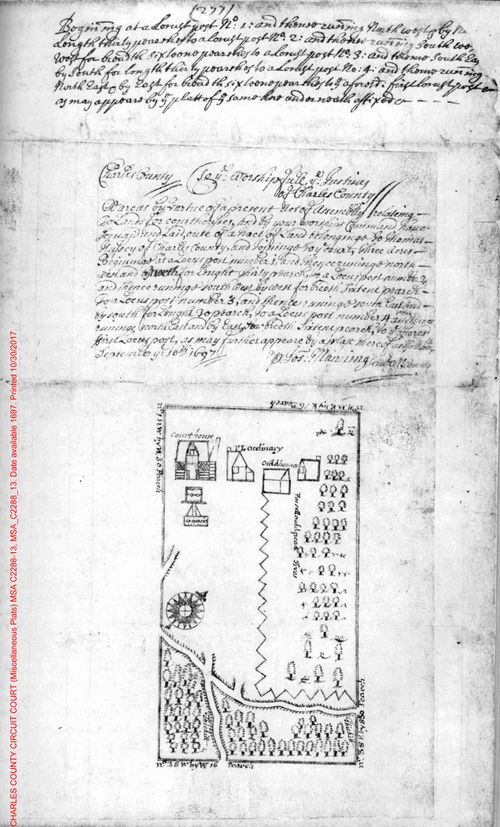 (277)
Begining at a Locust post No. 1: and thence runing North west & by No
Length thirty pearches to a Locust post No. 2: and thence runing South we
West for bredth sixteene pearches to a Locust post No. 3: and thence South East
by South for Length thirty pearches to a Locust post No: 4: and thence runing
North East & by East for bredth sixteene pearches to ye aforesd. first Locust post
as may appeare by ye platt of ye same here underneath affixed
Charles County
To ye. Worshipfull ye. Justices
of Charles County
Whereas by Vertue of a present Act of Assembly relateing
to Lands for court houses, and by your worships Command have
and Laid out a Parcel of Land belonginge to Thomas
Hussey of Charles County and Joyninge to ye Court, three Acres
Begininge at a Locus post number 1, and thence runinge north
west and by north for Lenght thirty pearch, to a Locus post number 2
and thence runinge south west by west for bredth sixtene pearch
to a Locus post number 3, and thence runinge south East and
by south for Lenght 30 pearch, to a Locus post number 4 and thence
runinge north East and by East, for bredth sixtene pearch, to ye afores
first Locus post, as may further appeare by a plat hereof
September ye: 10th 1697
p Jos. Maning
no 2
by W 16 Pearch
no 1 N W by N 30 Pearch
Courthouse
Pt. Ordinary
Ould house
no 3 S E by S 30 Pearch
by W 16 Pearch
CHARLES COUNTY CIRCUIT COURT (Miscellaneous Plats) MSA C2288-13, MSA_C2288_13. Date available 1697. Printed 10/30/2017.